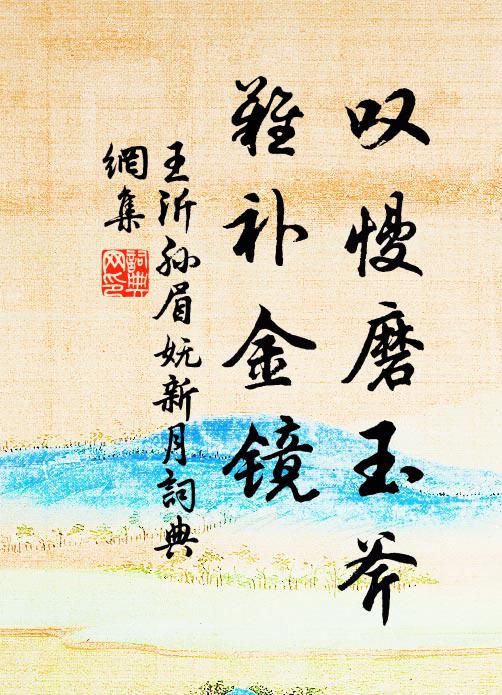 叹慢磨玉斧
难补金镜
王沂孙眉妩新月詞典
網集
詞典
网印